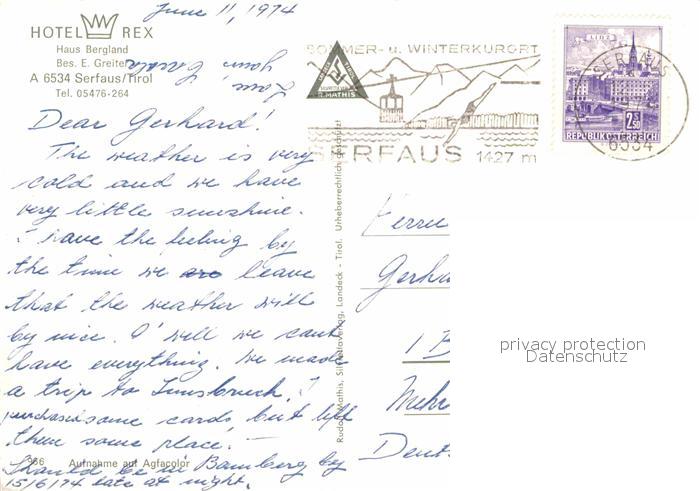 June 11, 1974
HOTEL REX
Haus Bergland
Bes. E. Greiter
A 6534 Serfaus/Tirol
Tel. 05476-264
Love,
Your
Dear Gerhard!
The weather is very
cold and we have
very little sunshine.
I have the feeling by
the time we are leave
that the weather will
by nice. O' well we cant
have everything. We made
a trip to Innsbruck. I
purchased some cards, but left
them some place. —
Should be in Bamberg by
15/6/74 late at night.
366 Aufnahme auf Agfacolor
Rudolf Mathis, Silvrettaverlag, Landeck - Tirol. Urheberrechtlich geschützt
R. MATHIS
SOMMER- u. WINTERKURORT
SERFAUS 1427 m
SERFAUS
6534
LINZ
2.50
REPUBLIK ÖSTERREICH
Herrn
Gerha
1 B
Deut
privacy protection
Datenschutz